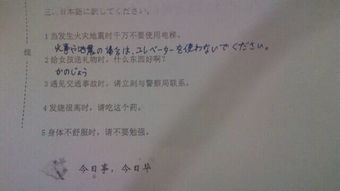 三、日本語に訳してください。
1 当发生火灾地震时千万不要使用电梯。
火事や地震の場合は、エレベーターを使わないでください。
2 给女孩送礼物时，什么东西好啊?
かのじょう
3 遇见交通事故时，请立刻与警察局联系。
4 发烧很高时，请吃这个药。
5 身体不舒服时，请不要勉强。
今日事，今日毕
线